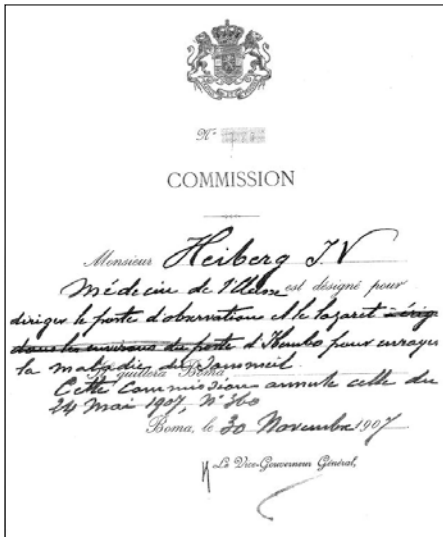 N°
COMMISSION
Monsieur Heiberg I. V
Médecin de l'Uele est désigné pour
diriger le poste d'observation et le lazaret à érig
dans les environs du poste d'Ibembo pour enrayer
la maladie du Sommeil.
Il quittera Boma
Cette Commission annule celle du
24 Mai 1907, N° 360
Boma, le 30 Novembre 1907
Le Vice-Gouverneur Général,